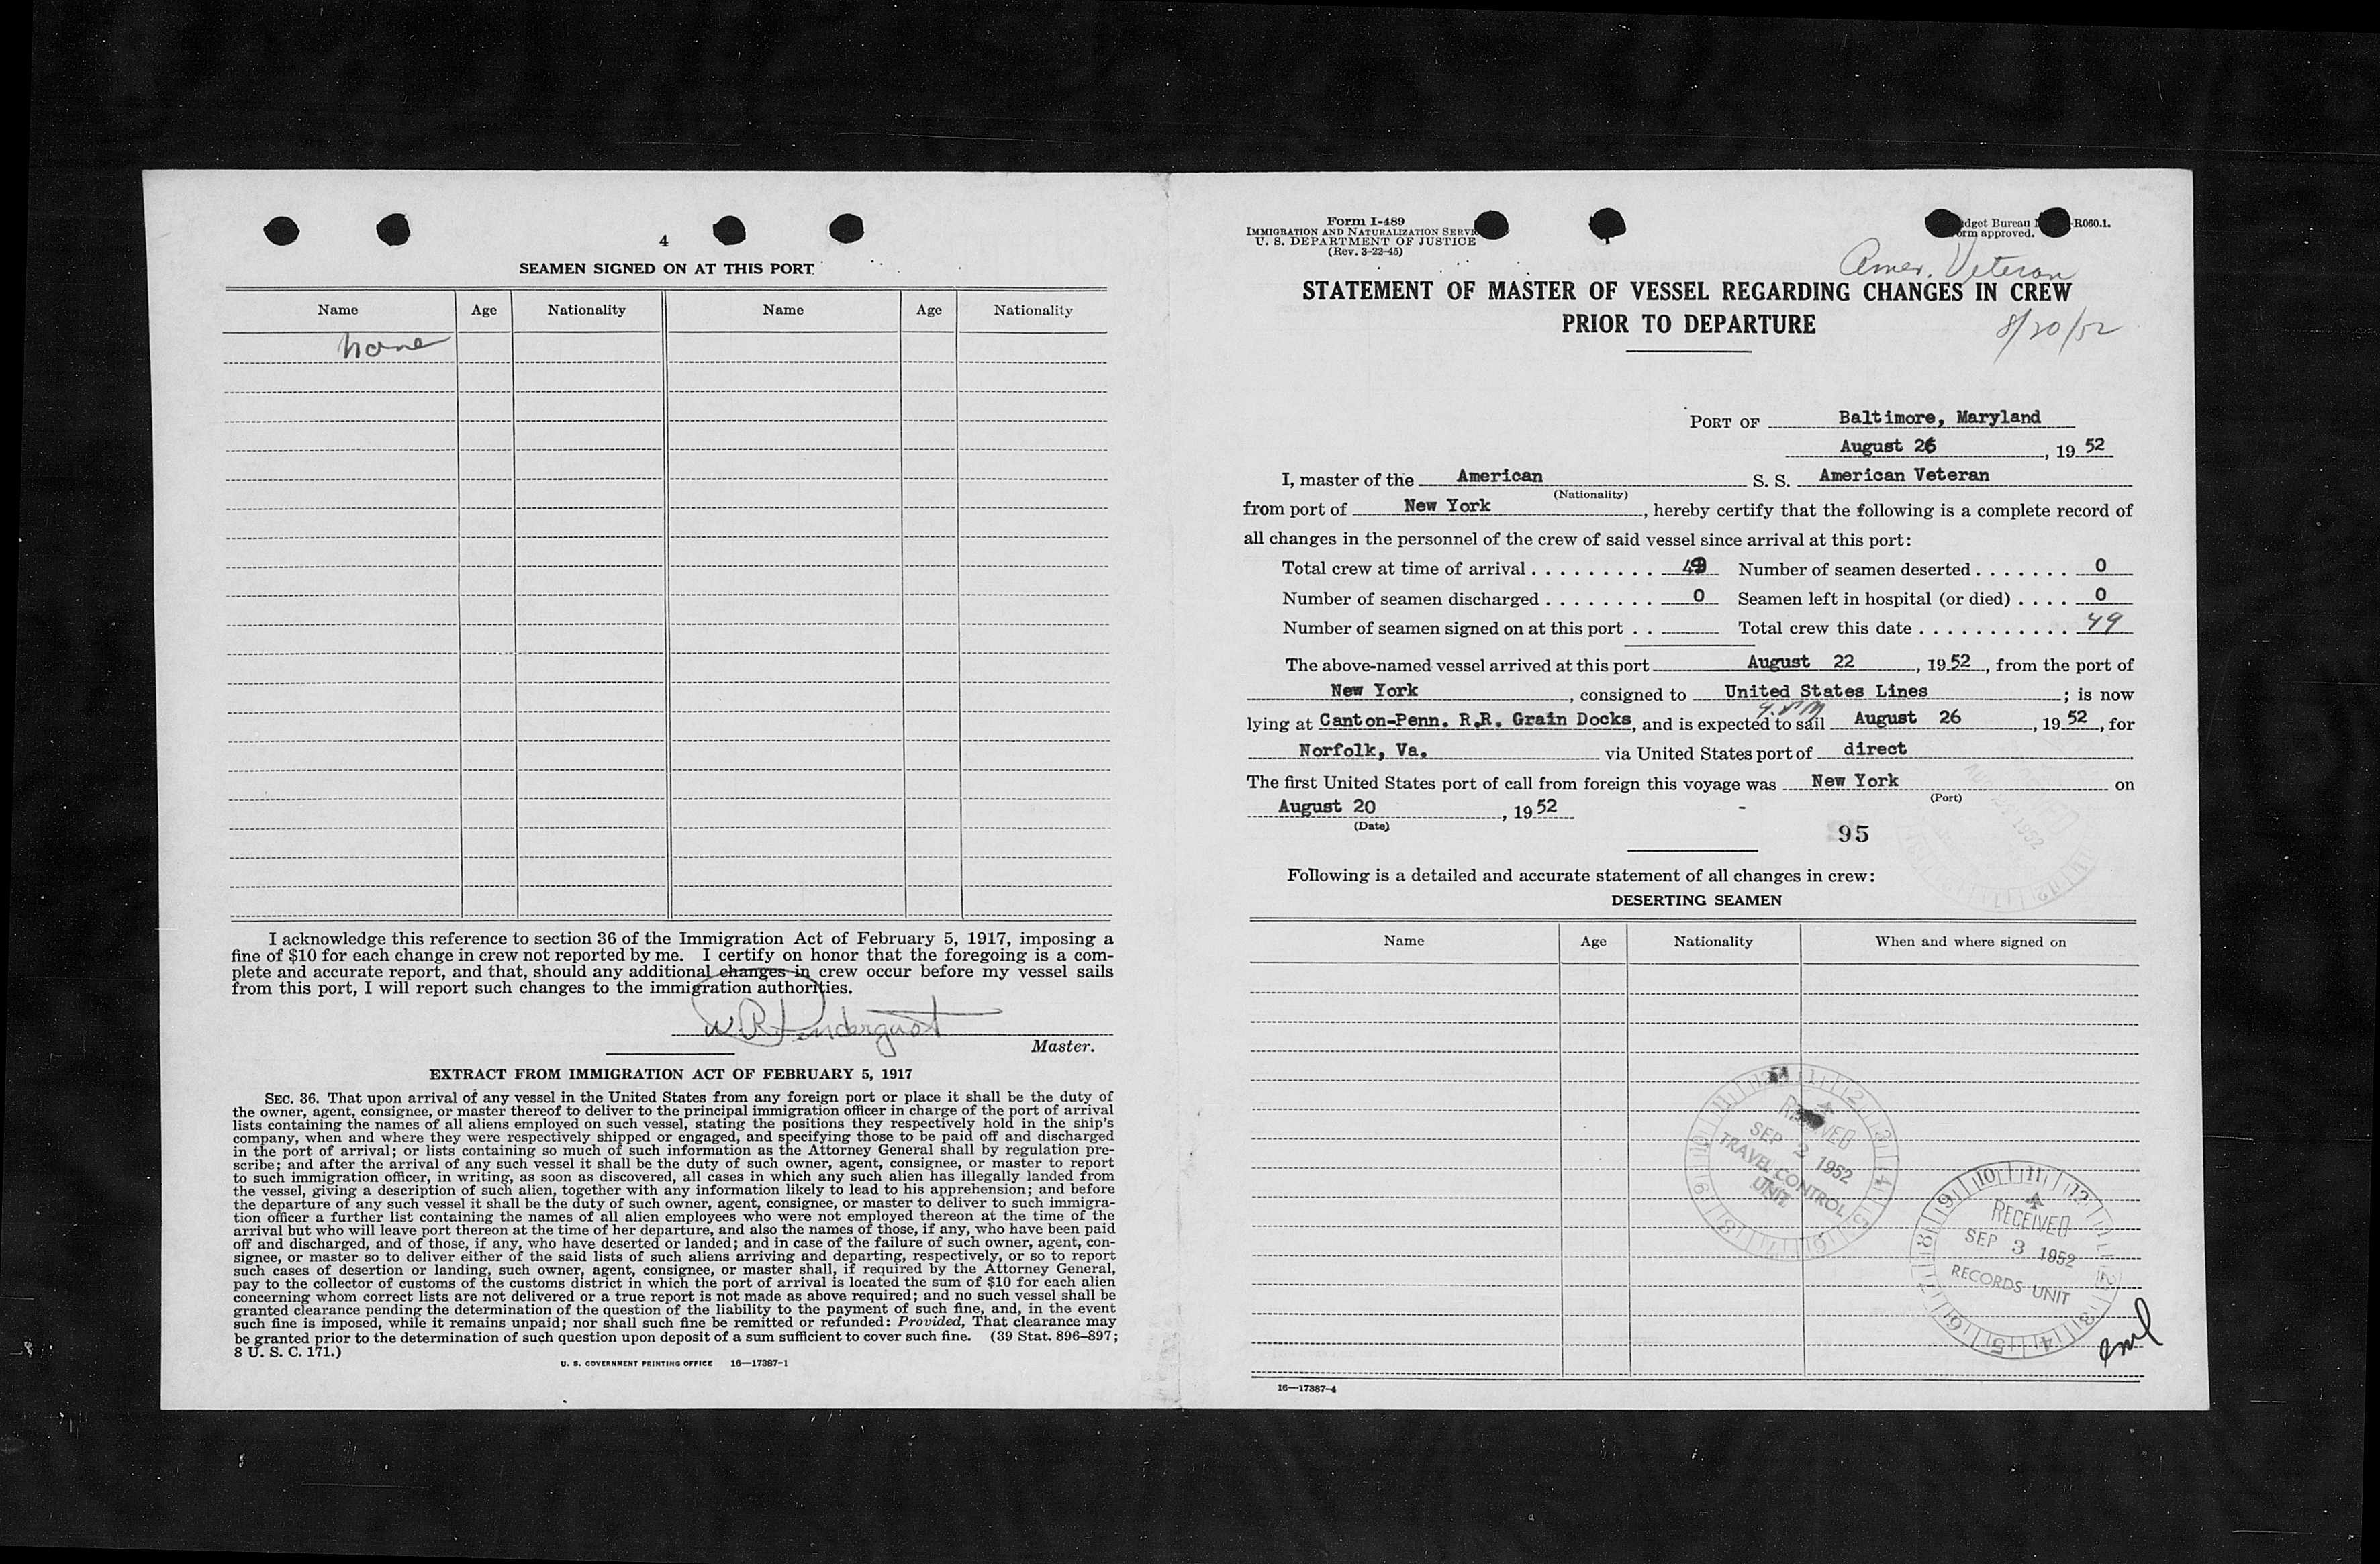 4
SEAMEN SIGNED ON AT THIS PORT
Name Age Nationality Name Age Nationality
None
I acknowledge this reference to section 36 of the Immigration Act of February 5, 1917, imposing a
fine of $10 for each change in crew not reported by me. I certify on honor that the foregoing is a com-
plete and accurate report, and that, should any additional changes in crew occur before my vessel sails
from this port, I will report such changes to the immigration authorities.
W R Pendergrast
Master.
EXTRACT FROM IMMIGRATION ACT OF FEBRUARY 5, 1917
SEC. 36. That upon arrival of any vessel in the United States from any foreign port or place it shall be the duty of
the owner, agent, consignee, or master thereof to deliver to the principal immigration officer in charge of the port of arrival
lists containing the names of all aliens employed on such vessel, stating the positions they respectively hold in the ship's
company, when and where they were respectively shipped or engaged, and specifying those to be paid off and discharged
in the port of arrival; or lists containing so much of such information as the Attorney General shall by regulation pre-
scribe; and after the arrival of any such vessel it shall be the duty of such owner, agent, consignee, or master to report
to such immigration officer, in writing, as soon as discovered, all cases in which any such alien has illegally landed from
the vessel, giving a description of such alien, together with any information likely to lead to his apprehension; and before
the departure of any such vessel it shall be the duty of such owner, agent, consignee, or master to deliver to such immigra-
tion officer a further list containing the names of all alien employees who were not employed thereon at the time of the
arrival but who will leave port thereon at the time of her departure, and also the names of those, if any, who have been paid
off and discharged, and of those, if any, who have deserted or landed; and in case of the failure of such owner, agent, con-
signee, or master so to deliver either of the said lists of such aliens arriving and departing, respectively, or so to report
such cases of desertion or landing, such owner, agent, consignee, or master shall, if required by the Attorney General,
pay to the collector of customs of the customs district in which the port of arrival is located the sum of $10 for each alien
concerning whom correct lists are not delivered or a true report is not made as above required; and no such vessel shall be
granted clearance pending the determination of the question of the liability to the payment of such fine, and, in the event
such fine is imposed, while it remains unpaid; nor shall such fine be remitted or refunded: Provided, That clearance may
be granted prior to the determination of such question upon deposit of a sum sufficient to cover such fine. (39 Stat. 896–897;
8 U. S. C. 171.)
U. S. GOVERNMENT PRINTING OFFICE 16—17387-1
Form I-489
IMMIGRATION AND NATURALIZATION
U. S. DEPARTMENT OF JUSTICE
(Rev. 3-22-45)
Bureau R060.1.
approved.
Amer. Veteran
STATEMENT OF MASTER OF VESSEL REGARDING CHANGES IN CREW
PRIOR TO DEPARTURE
8/20/52
PORT OF Baltimore, Maryland
August 26, 19 52
I, master of the American S. S. American Veteran
(Nationality)
from port of New York, hereby certify that the following is a complete record of
all changes in the personnel of the crew of said vessel since arrival at this port:
Total crew at time of arrival . . . . . . . . . 49 Number of seamen deserted . . . . . . . 0
Number of seamen discharged . . . . . . . . 0 Seamen left in hospital (or died) . . . . 0
Number of seamen signed on at this port . . Total crew this date . . . . . . . . . . . 49
The above-named vessel arrived at this port August 22, 19 52, from the port of
New York, consigned to United States Lines; is now
lying at Canton-Penn. R.R. Grain Docks, and is expected to sail August 26, 19 52, for
Norfolk, Va. via United States port of direct
The first United States port of call from foreign this voyage was New York on
(Port)
August 20, 19 52
(Date)
95
Following is a detailed and accurate statement of all changes in crew:
DESERTING SEAMEN
Name Age Nationality When and where signed on
RECEIVED
SEP 2 1952
TRAVEL CONTROL
UNIT
RECEIVED
SEP 3 1952
RECORDS UNIT
16—17387-4